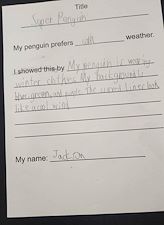 Title
Super Penguin
My penguin prefers cold weather.
I showed this by My penguin is wearing
winter clothes. My background is
blue, green, and purple. The curved lines look
like a cool wind.
My name: Jackson